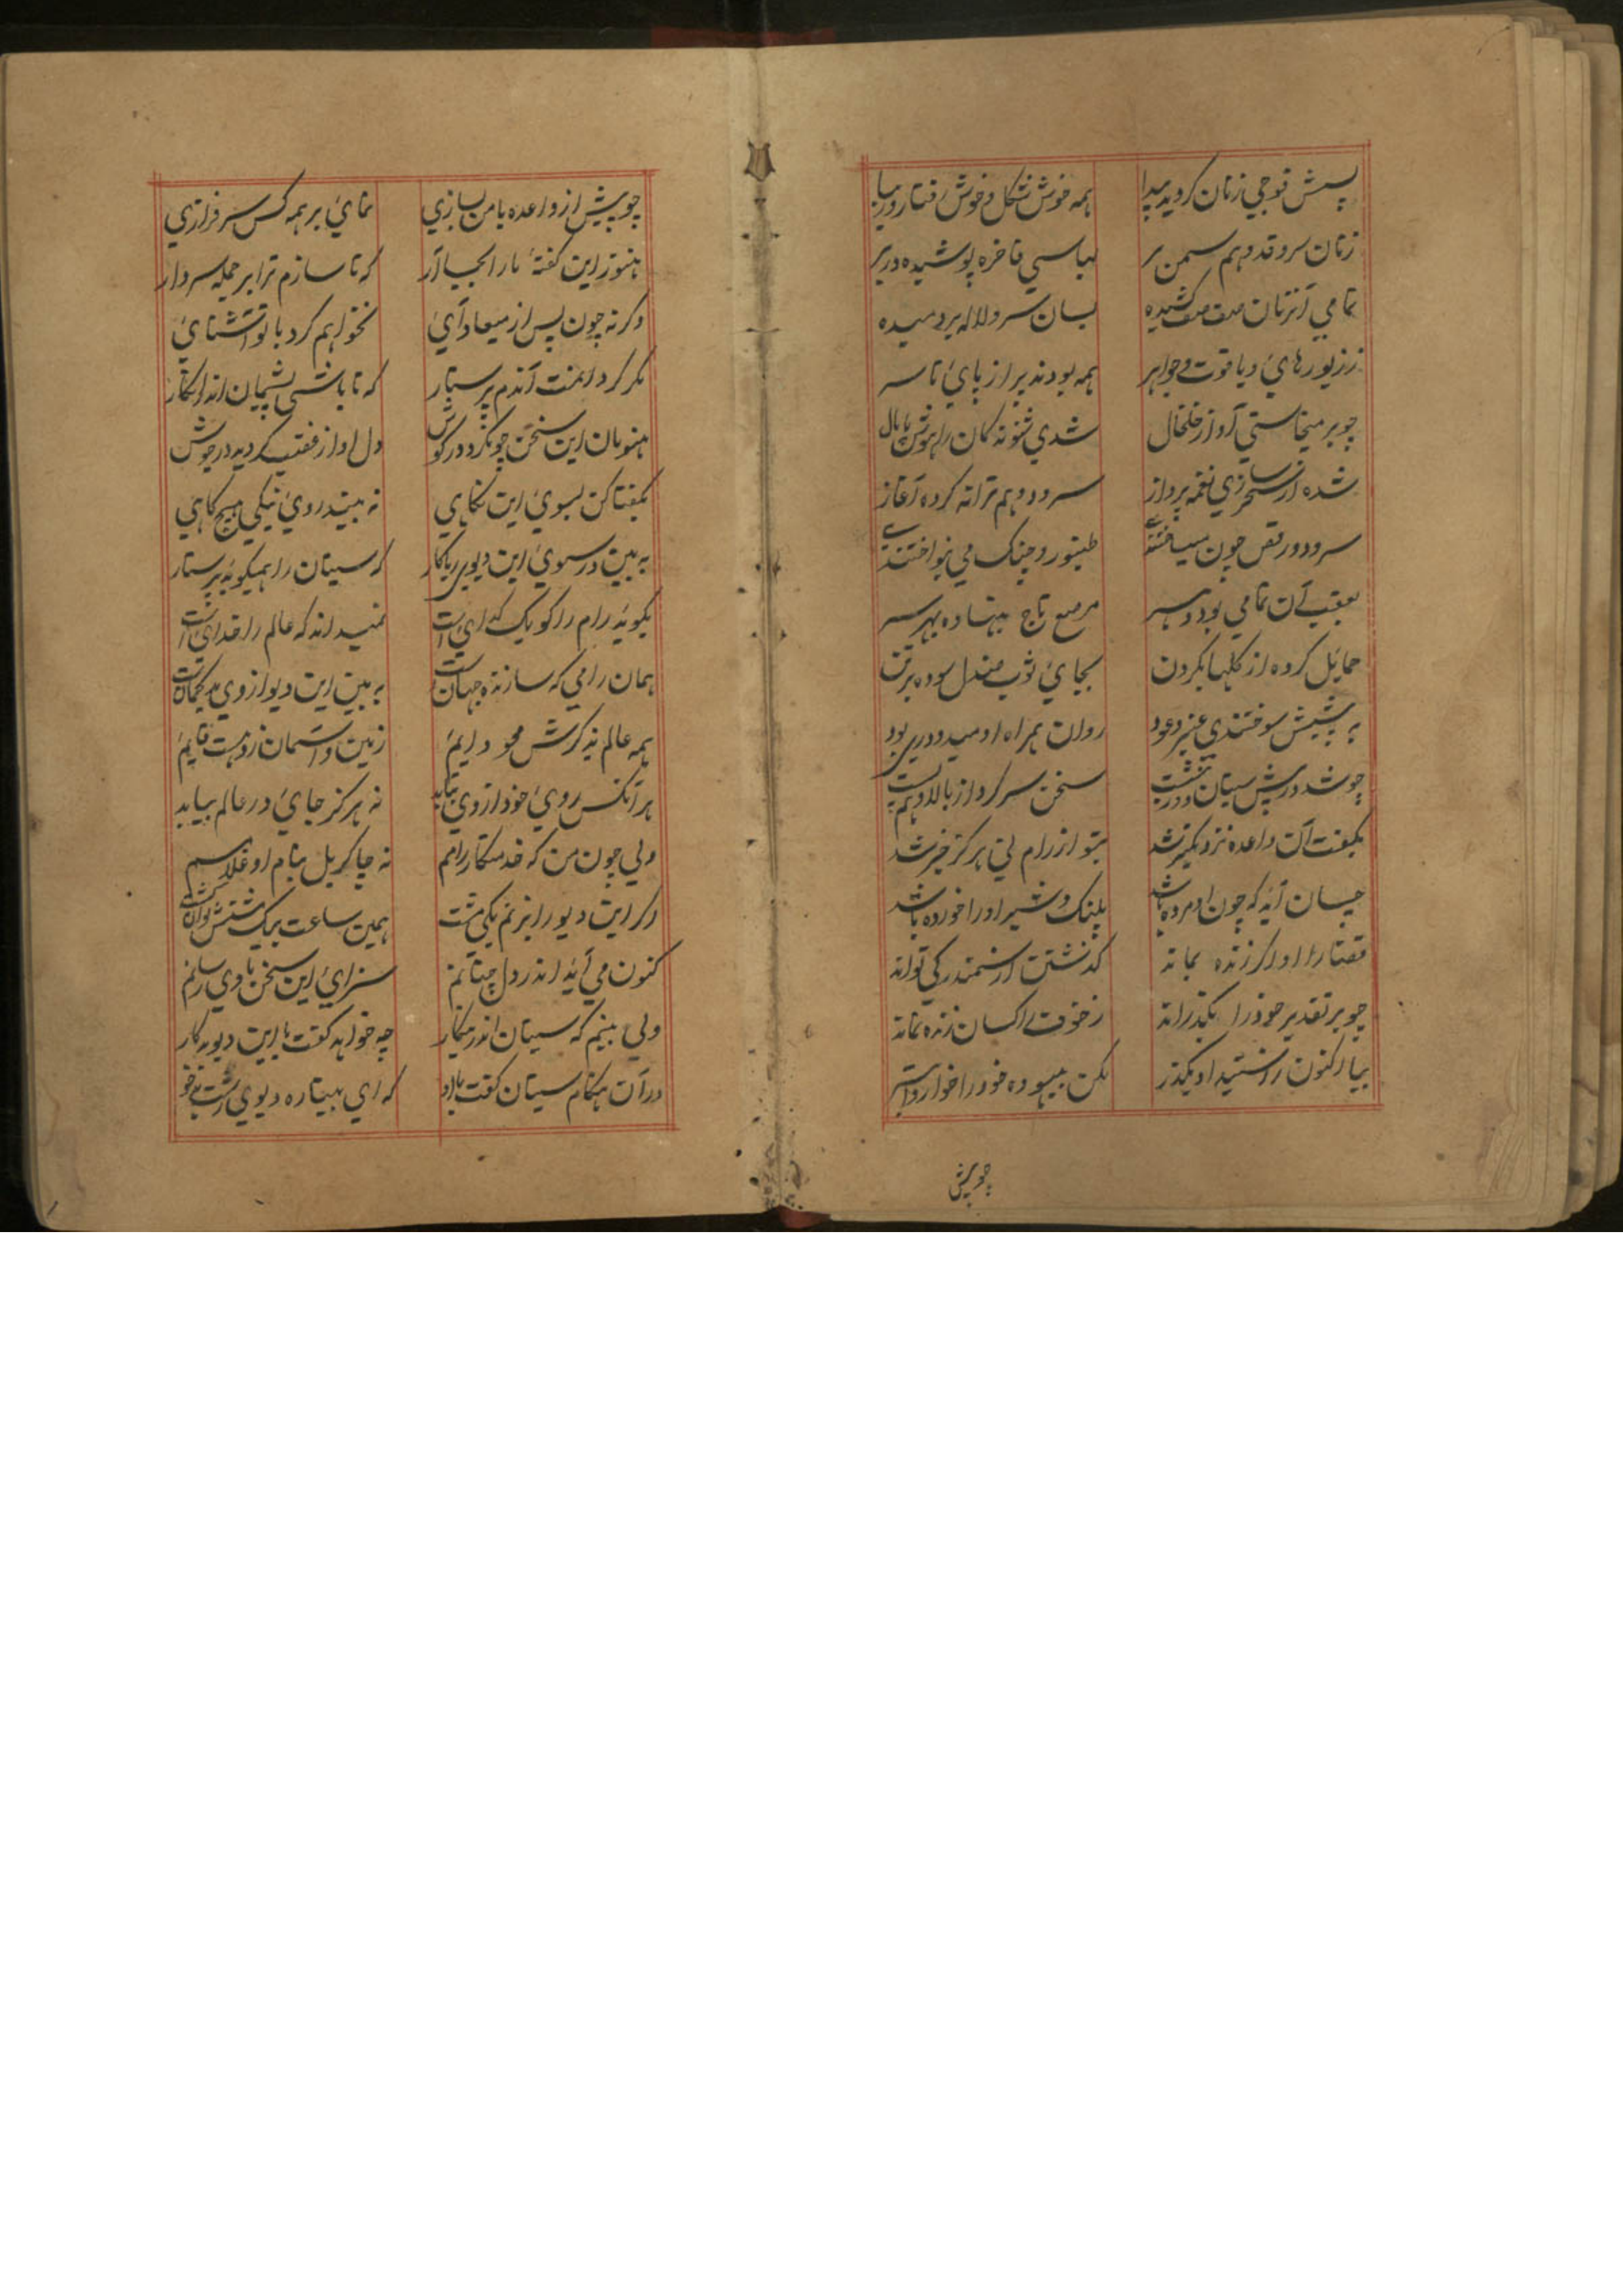 پسش فوجی زنان کردید پیدا همه خوش شکل و خوش رفتار و زیبا
زنان سرو قد و هم سمن بر لباسی فاخره پوشیده در بر
تمامی آنزنان صف صف کشیده بسان سرو لاله بردمیده
ززیورهای و یاقوت و جواهر همه بودند پر از پای تا سر
چو بر میخاستی آواز خلخال شدی شنونده کان را هوش پامال
شده از سحرسازی نغمه پرداز سرود و هم ترانه کرده آغاز
سرود و رقص چون میساختندی طنبور و چنک می نواختندی
بعقب آن تمامی بود دهسر مرصع تاج بنهاده بهر سر
حمایل کرده از کلها بکردن بجای ثوب صندل سوده بر تن
به پیشش سوختندی عنبر و عود روان همراه او مندودری بود
چو شد در پیش سیتان سخن سر کرد از بالا و هم پست
بکفت آن واعده نزدیکتر شد بتو از رام نی هرکز خبر شد
چسان آید که چون او مرده باشد پلنک و شیر او را خورده باشد
قضا را او اکر زنده بماند کذشتن از سمندر کی تواند
چو بر تقدیر خود را بکذراند ز خوف راکسان زنده نماند
بیا اکنون ز امید او بکذر مکن بیهوده خود را خوار و ابتر
چوپیش
چو پیش از واعده با من بسازی نمای بر همه کس سرفرازی
هنوز این کفتهٔ ما را بجا آر که تا سازم ترا بر جمله سردار
وکرنه چون پس از میعاد آی نخواهم کرد با تو آشنای
مکر کردامنت آندم پرستار که تا باشی پشیمان اندر آنکار
هنومان این سخن چو کرد در کوش دل او از غضب کردید در جوش
بکفتا کن بسوی این نکاهی نه بیند روی نیکی هیچ کاهی
به بین در سوی این دیو ریاکار که سیتان را همیکوید پرستار
بکوید رام را کو یک کدای است نمیداند که عالم را خدای است
همان رامی که سازنده جهان است به بین این دیو از وی بدکمان است
همه عالم بذکرش محو دایم زمین و آسمان زو هست قایم
هر آنکس روی خود از وی بتابد نه هرکز جای در عالم بیابد
ولی چون من که خدمتکار رامم نه چاکر بل بنام او غلامم
اکر این دیو را بزنم یکی مشت همین ساعت بیک مشتش توان کشت
کنون می آید اندر دل چنانم سزای این سخن با وی رسانم
ولی بینم که سیتان اندرینکار چه خواهد کفت با این دیو بدکار
در آن هنکام سیتان کفت با او که ای بیچاره دیوی زشت بدخو